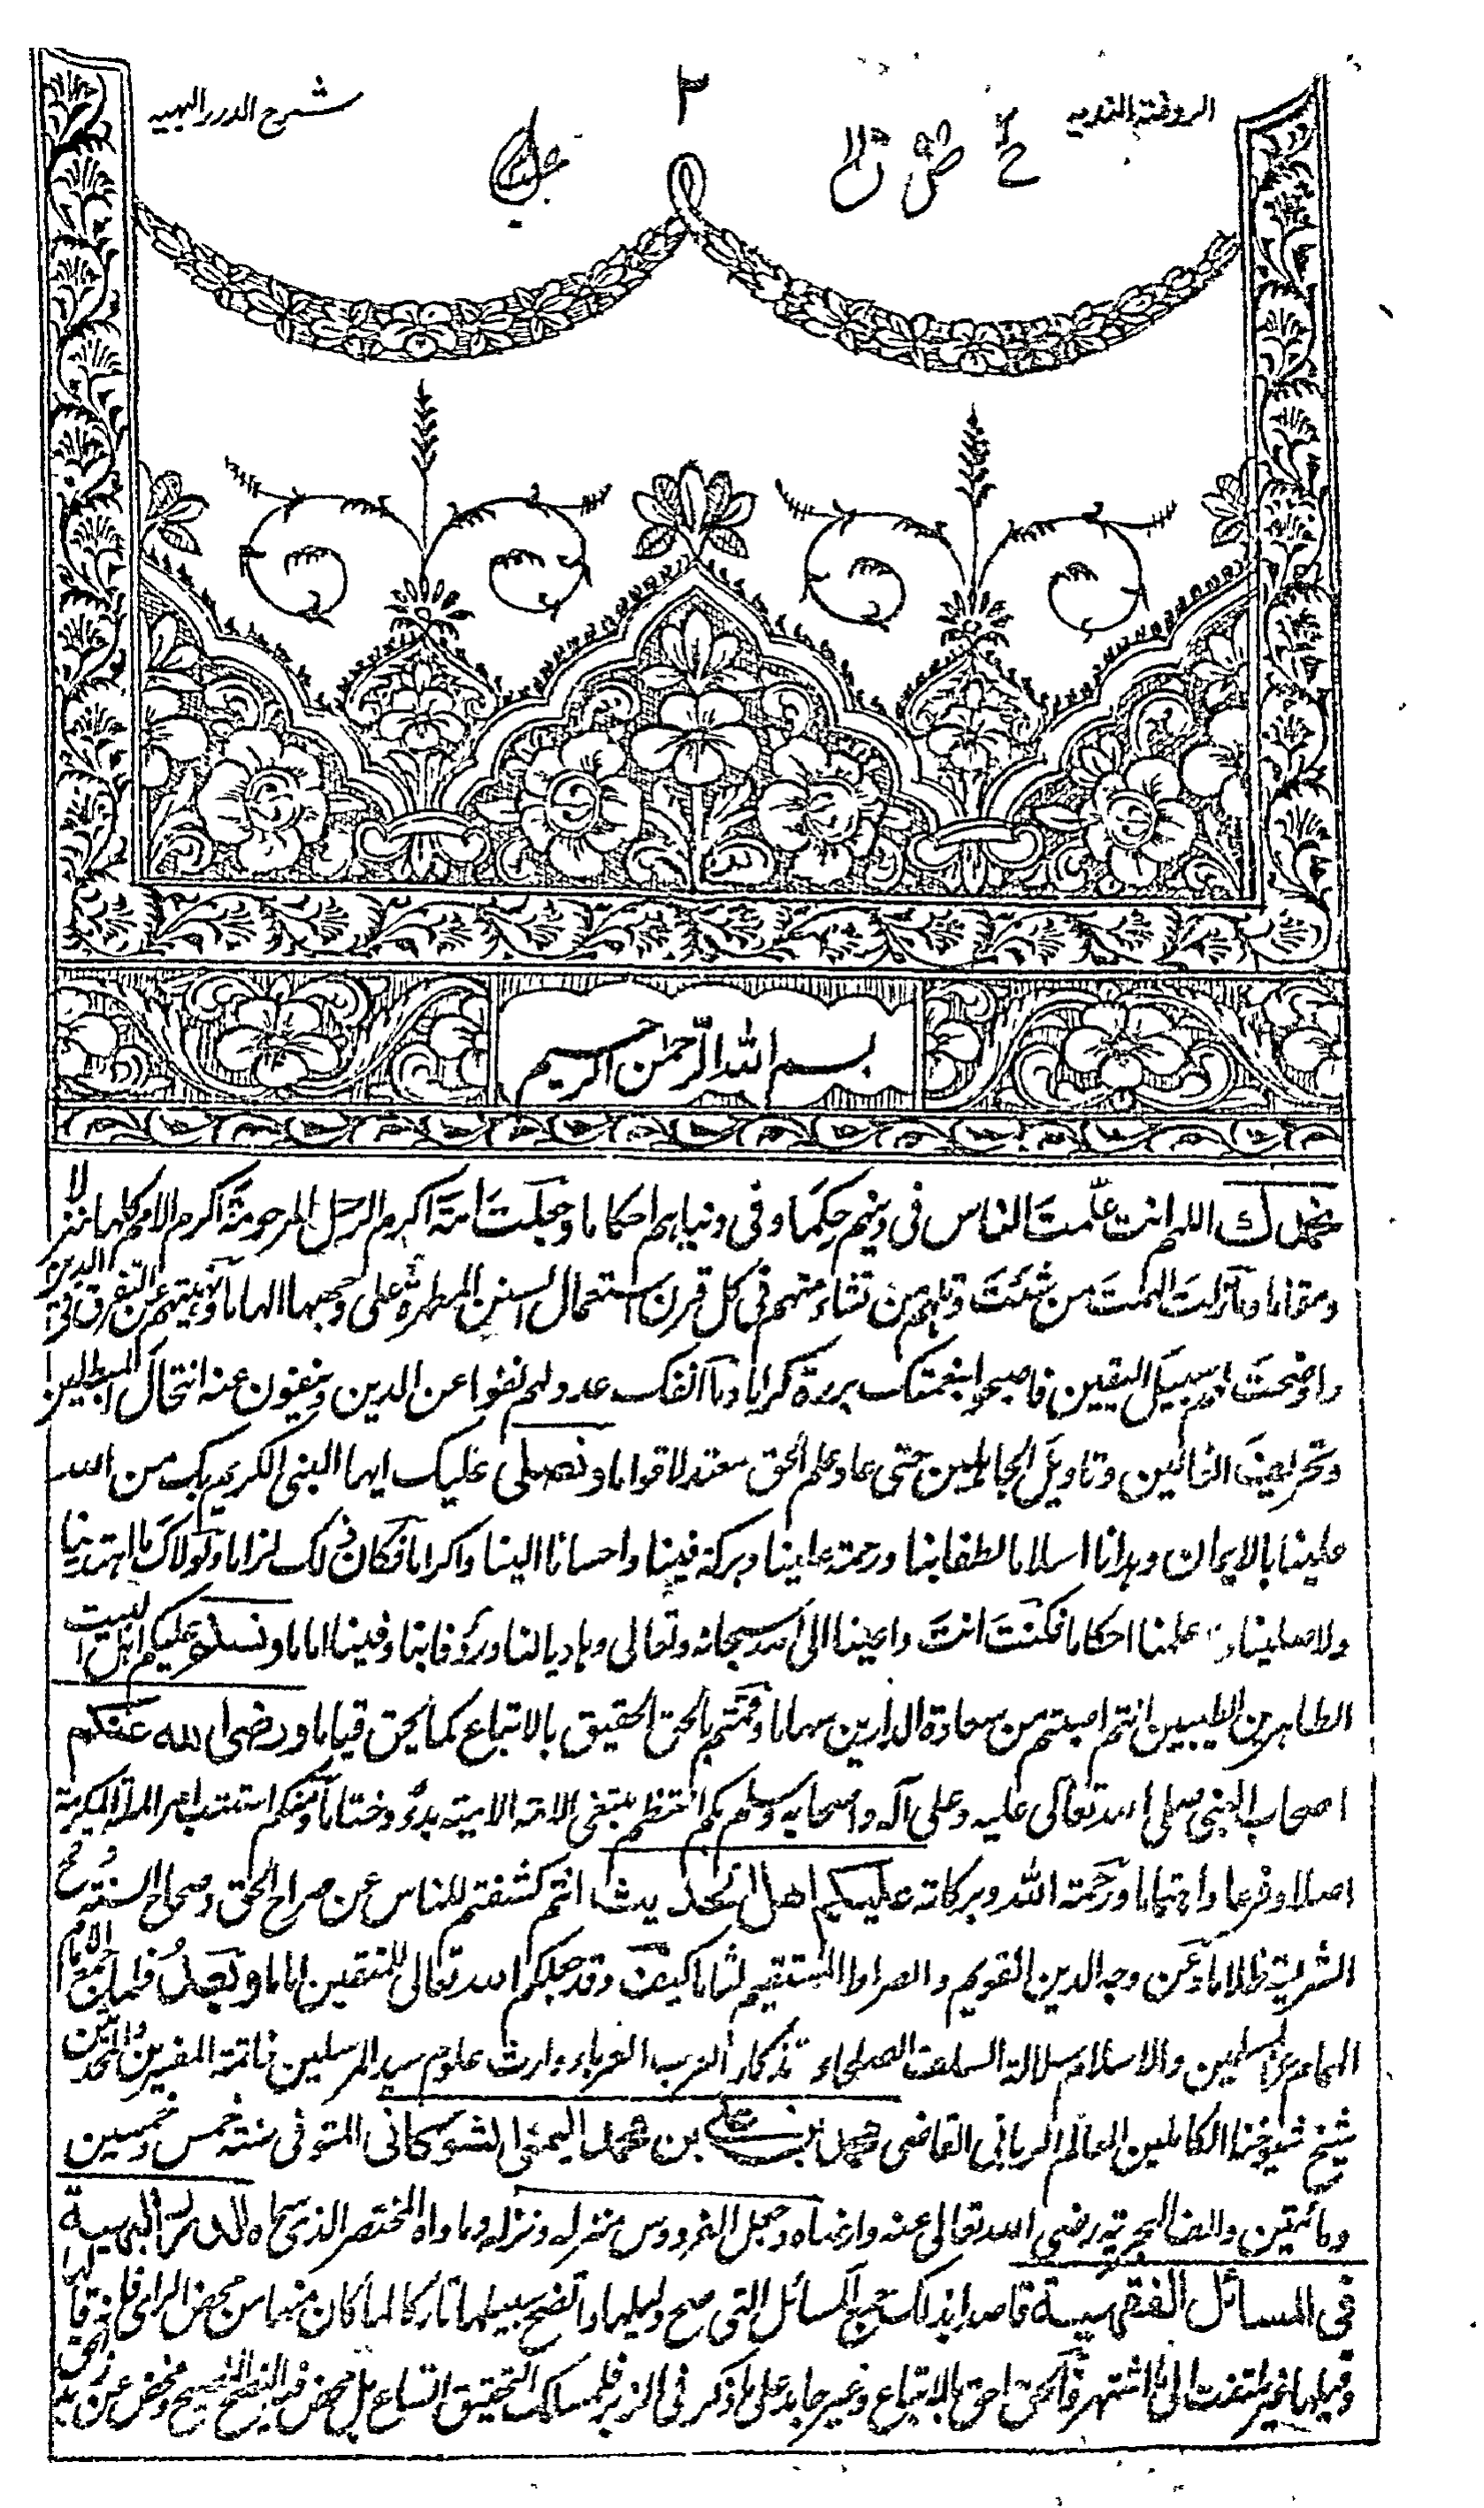 الروضة الندیه
٢
شرح الدرر البهیه
بسم الله الرحمن الرحيم
نحمدك اللهم انت علّمت الناس فی دینهم حِكَمًا و فی دنیاهم احكاما و جعلت امة اكرم الرسل المرحومة اكرم الامم كلها منزلا
و مقاما و ما زلت الهمت من شئت و تلهم من تشاء منهم فی كل قرن استعمال السنن المطهرة علی وجهها الهاما و نهیتهم عن التفرق فی الدین
و اوضحت لهم سبیل الیقین فاصبحوا بنعمتك بررة كراما و ما انفك عدولهم نفوا عن الدین و ینفون عنه انتحال المبطلین
و تحریف الغالین و تاویل الجاهلین حتی عاد علم الحق معتدلا قواما و نصلی علیك ایها النبی الكریم بك من الله
علینا بالایمان و هدانا اسلاما لطفا بنا و رحمة علینا و بركة فینا و احسانا الینا و اكراما فكان ذلك لزاما و لولاك ما اهتدینا
و لا صلینا و علمنا احكاما فكنت انت داعینا الی الله سبحانه و تعالی و هادیا لنا و رؤفا بنا و فینا اماما و نسلم علیكم اهل البیت
الطاهرین الطیبین انتم اصبتم من سعادة الدارین سهاما و قمتم بالحق الحقیق بالاتباع كما یحق قیاما و رضی الله عنكم
اصحاب النبی صلی الله تعالی علیه و علی آله و اصحابه و سلم بكم انتظم مبتغی الامة الامیة بدءً و ختاما و منكم استتب امر الملة المكرمة
اصلا و فرعا و اهتماما و رحمة الله و بركاته علیكم اهل الحدیث انتم كشفتم للناس عن صراح الحق و صحاح السنة
الشریفة ظلاما و عن وجه الدین القویم و الصراط المستقیم لثاما كیف و قد جعلكم الله تعالی للمتقین اماما و بعدُ فلما
المسلمین و الاسلام سلالة السلف الصلحاء تذكار العرب العرباء وارث علوم سید المرسلین خاتمة المفسرین و المحدثین
شیخ شیوخنا الكاملین العالم الربانی القاضی محمد بن علی بن محمد الیمنی الشوكانی المتوفی سنة خمس و خمسین
و مائتین و الف الهجریة رضی الله تعالی عنه و ارضاه و جعل الفردوس منزله و نزله و ماواه المختصر الذی سماه الدرر البهیة
فی المسائل الفقهیة قاصدا بذلك جمع المسائل التی صح دلیلها و اتضح سبیلها تاركا لما كان منها من محض الرای فانه
و قیلها غیر ملتفت الی ما اشتهر فالحق احق بالاتباع و غیر جامد علی ما ذكر فی الزبر فلمسالك التحقیق اتساع بل محض فیه النصح النصیح و مخض عن